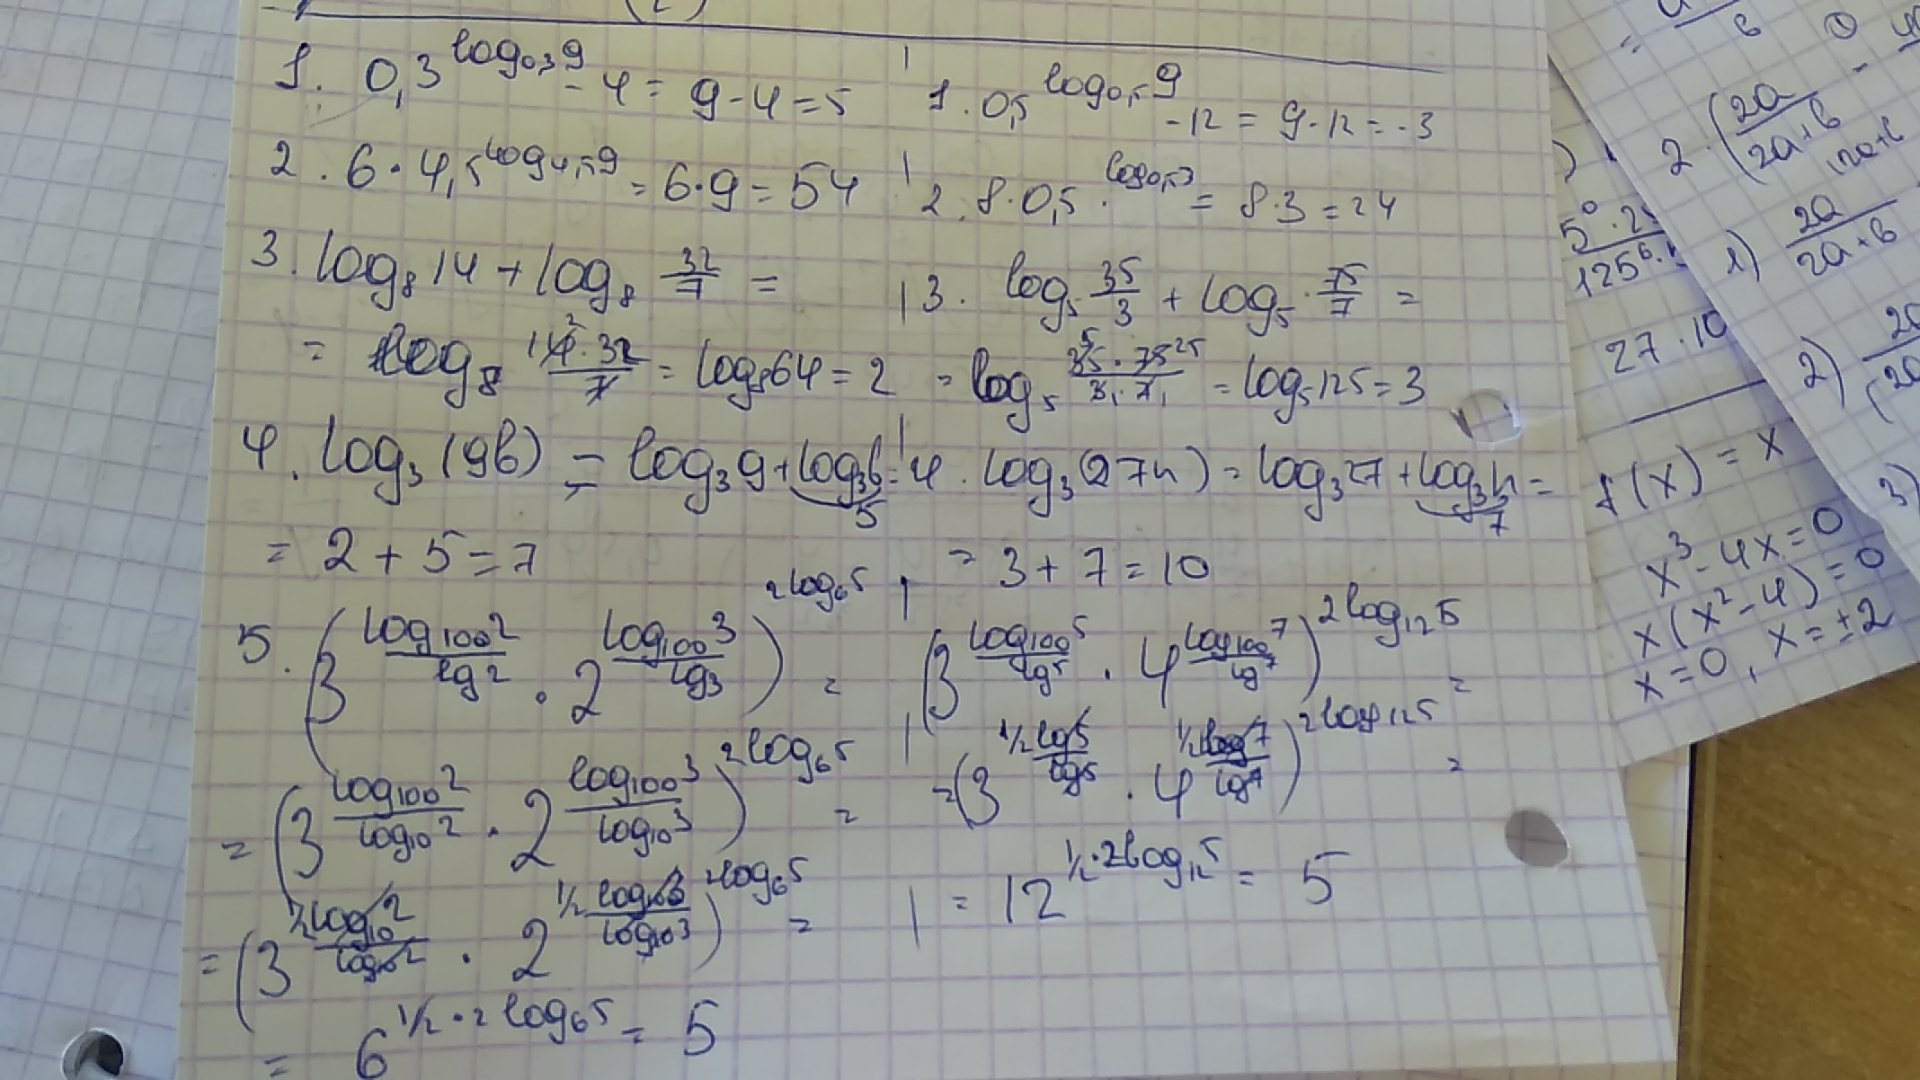 1. 0,3^{log_{0,3} 9} - 4 = 9 - 4 = 5
2. 6 · 4,5^{log_{4,5} 9} = 6 · 9 = 54
3. log₈ 14 + log₈ 32/7 =
= log₈ (14² · 32)/7 = log₈ 64 = 2
4. log₃ (9b) = log₃ 9 + log₃ b =
5
= 2 + 5 = 7
5. (3^{log₁₀₀ 2 / lg 2} · 2^{log₁₀₀ 3 / lg 3})^{2 log₆ 5} =
= (3^{log₁₀₀ 2 / log₁₀ 2} · 2^{log₁₀₀ 3 / log₁₀ 3})^{2 log₆ 5} =
= (3^{½ log₁₀ 2 / log₁₀ 2} · 2^{½ log₁₀ 3 / log₁₀ 3})^{2 log₆ 5} =
= 6^{½ · 2 log₆ 5} = 5
1. 0,5^{log_{0,5} 9} - 12 = 9 - 12 = -3
2. 8 · 0,5^{log_{0,5} 3} = 8 · 3 = 24
3. log₅ 35/3 + log₅ 75/7 =
= log₅ (35 · 75)/(3 · 7) = log₅ 125 = 3
4. log₃ (27n) = log₃ 27 + log₃ n =
7
= 3 + 7 = 10
(3^{log₁₀₀ 5 / lg 5} · 4^{log₁₀₀ 7 / lg 7})^{2 log₁₂ 5} =
= (3^{½ lg 5 / lg 5} · 4^{½ log 7 / lg 7})^{2 log₁₂ 5} =
= 12^{½ · 2 log₁₂ 5} = 5
27 · 10
f(x) = x
x³ - 4x = 0
x(x² - 4) = 0
x = 0, x = ±2
2. (2a/(2a+b)
1) 2a/(2a+b)
2)
3)